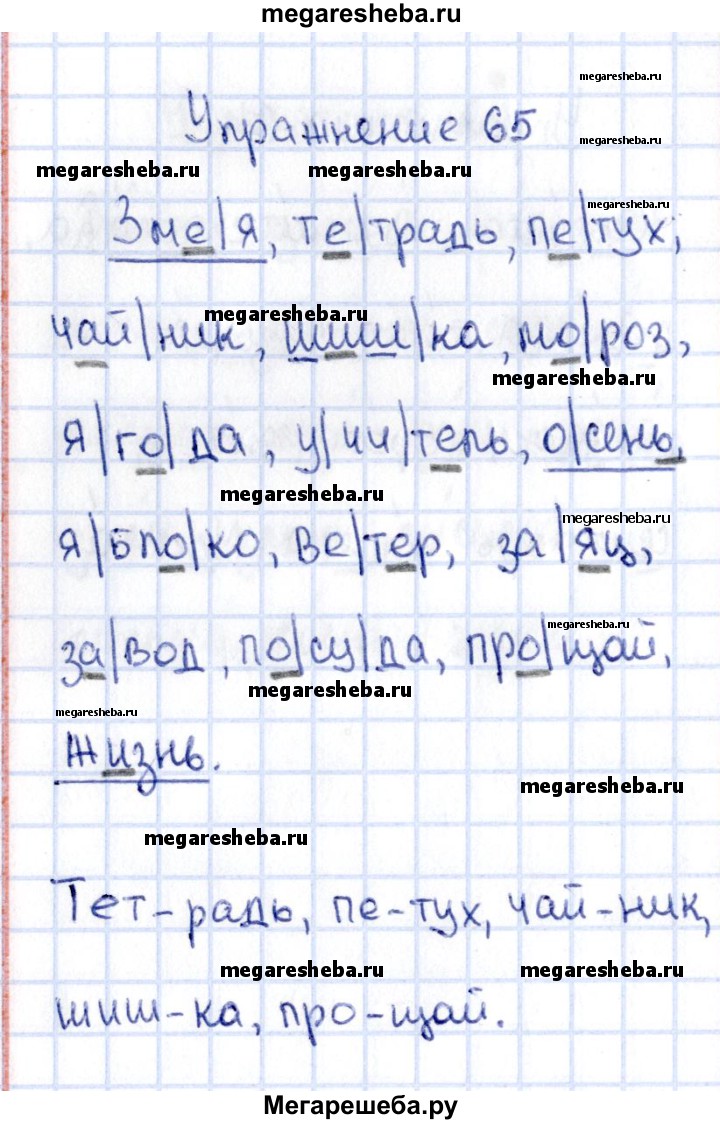 megaresheba.ru
megaresheba.ru
Упражнение 65
megaresheba.ru megaresheba.ru
megaresheba.ru
Зме|я, те|традь, пе|тух,
megaresheba.ru
чай|ник, шиш|ка, мо|роз,
megaresheba.ru
я|го|да, у|чи|тель, о|сень,
megaresheba.ru
megaresheba.ru
я|бло|ко, ве|тер, за|яц,
megaresheba.ru
за|вод, по|су|да, про|щай,
megaresheba.ru
megaresheba.ru
жизнь.
megaresheba.ru
megaresheba.ru
Тет-радь, пе-тух, чай-ник,
megaresheba.ru megaresheba.ru
шиш-ка, про-щай.
Мегарешеба.ру